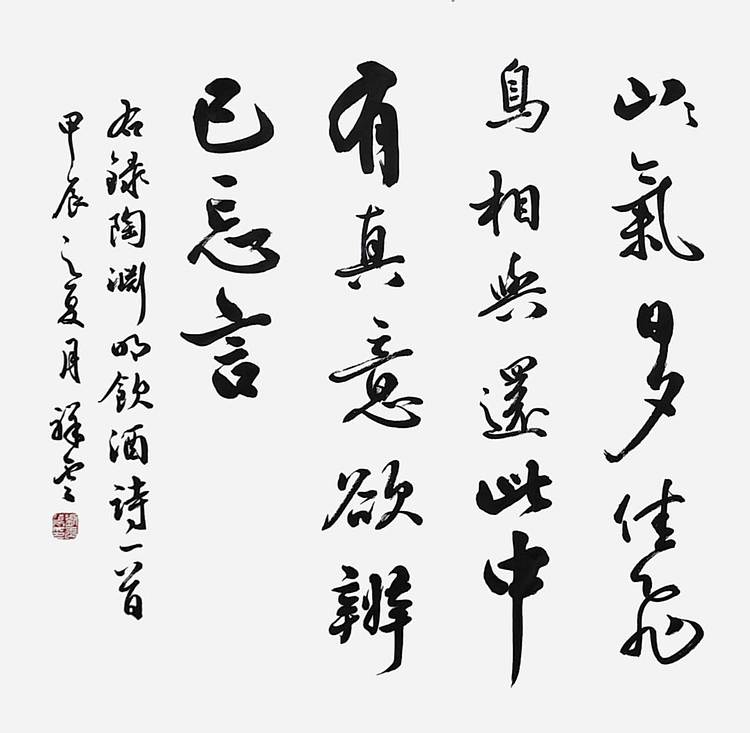 山氣日夕佳飛
鳥相與還此中
有真意欲辨
已忘言
右錄陶淵明飲酒詩一首
甲辰之夏月祥雲